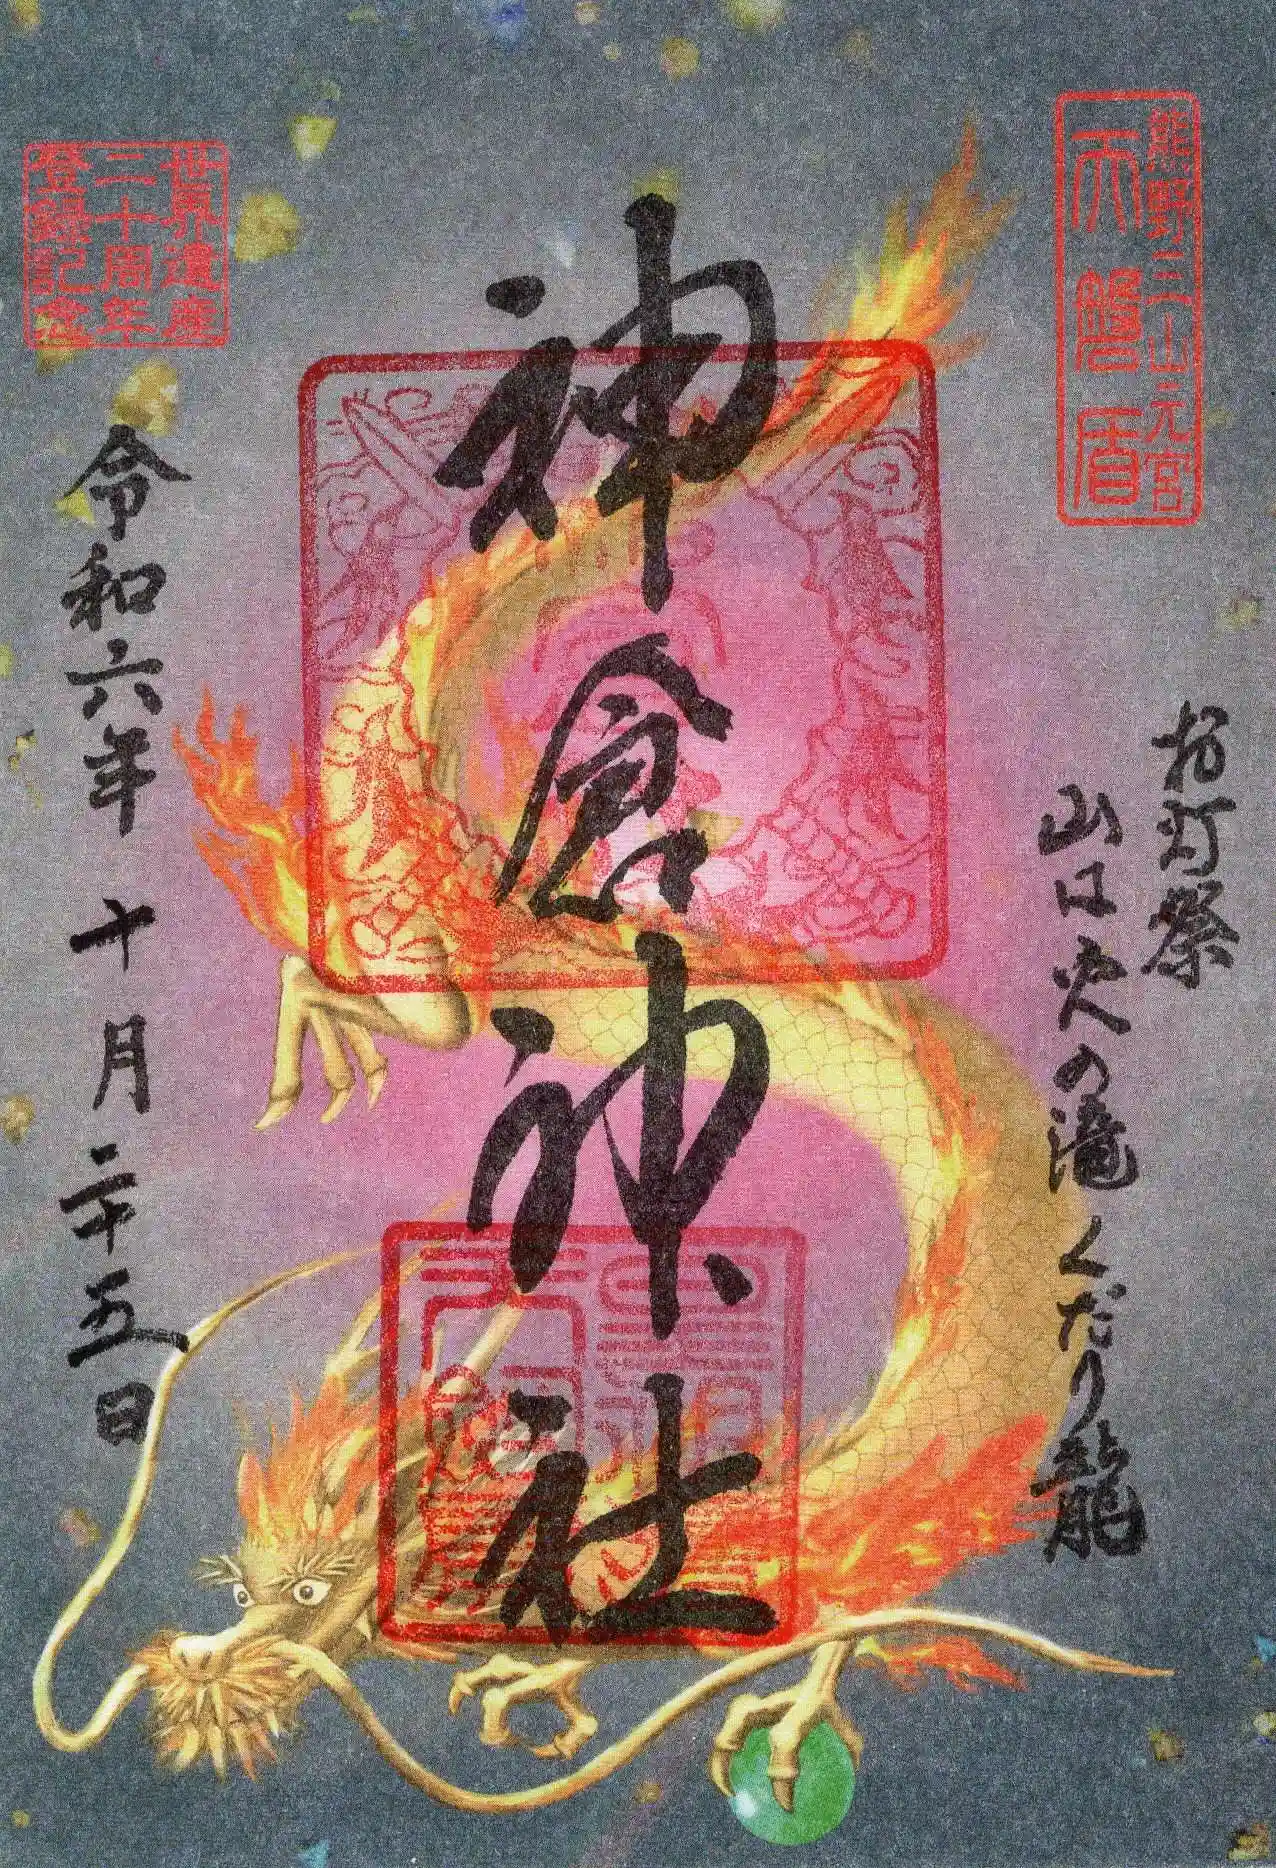 熊野三山元宮
天磐盾
お灯祭
山は火の滝くだり龍
神倉神社
世界遺産
二十周年
登録記念
令和六年十月二十五日